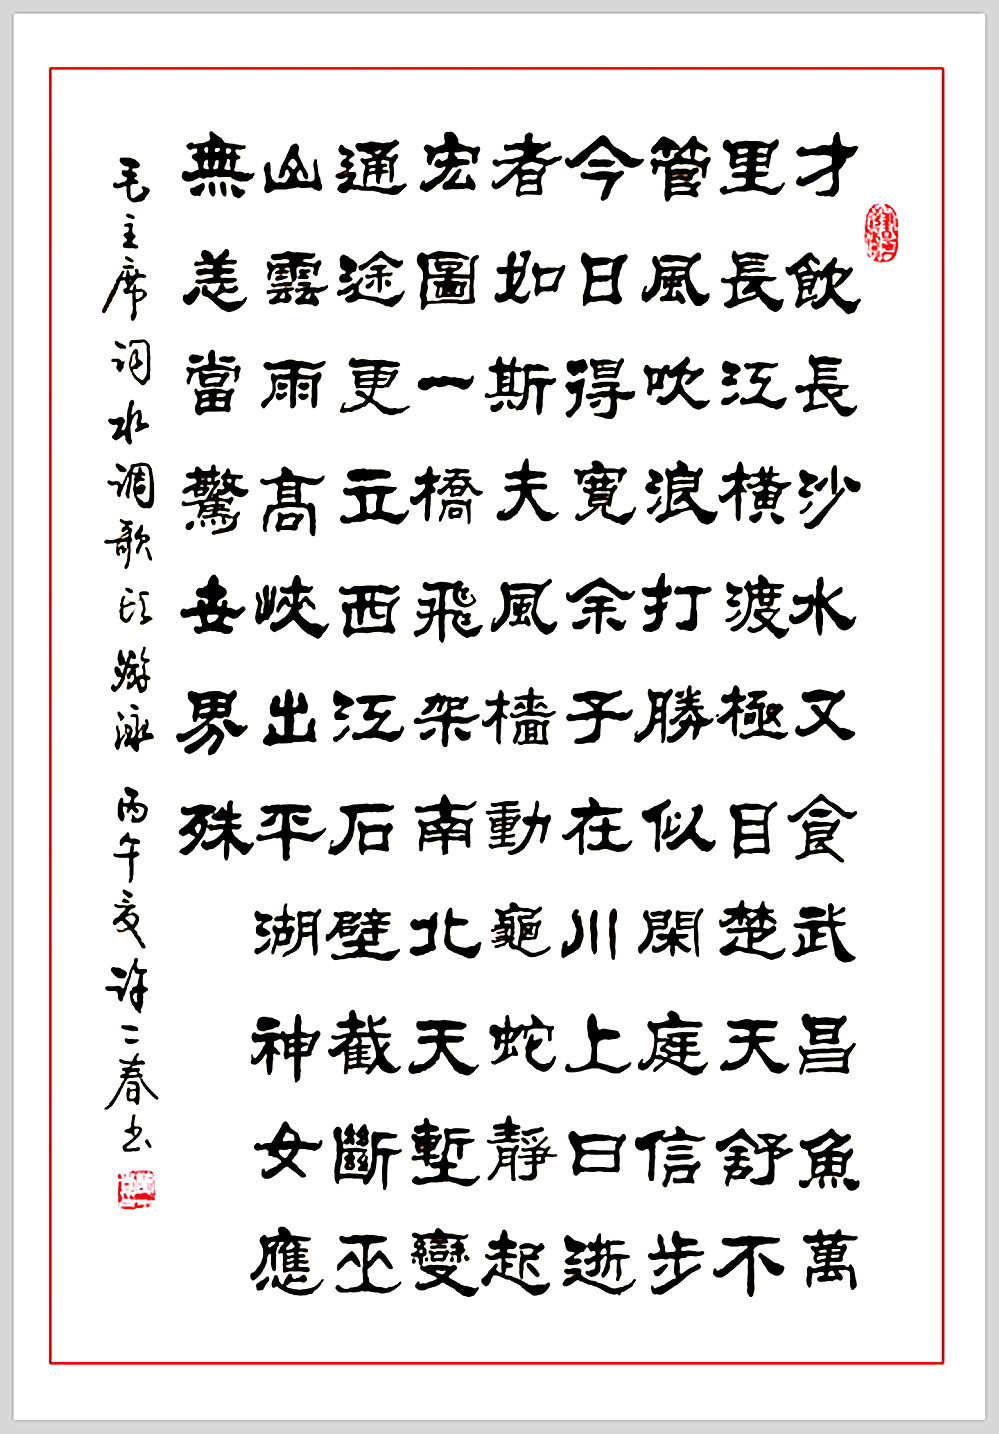 才飲長沙水又食武昌魚萬
里長江橫渡極目楚天舒不
管風吹浪打勝似閑庭信步
今日得寬余子在川上曰逝
者如斯夫風檣動龜蛇靜起
宏圖一橋飛架南北天塹變
通途更立西江石壁截斷巫
山雲雨高峽出平湖神女應
無恙當驚世界殊
毛主席词水调歌头游泳丙午夏许二春书